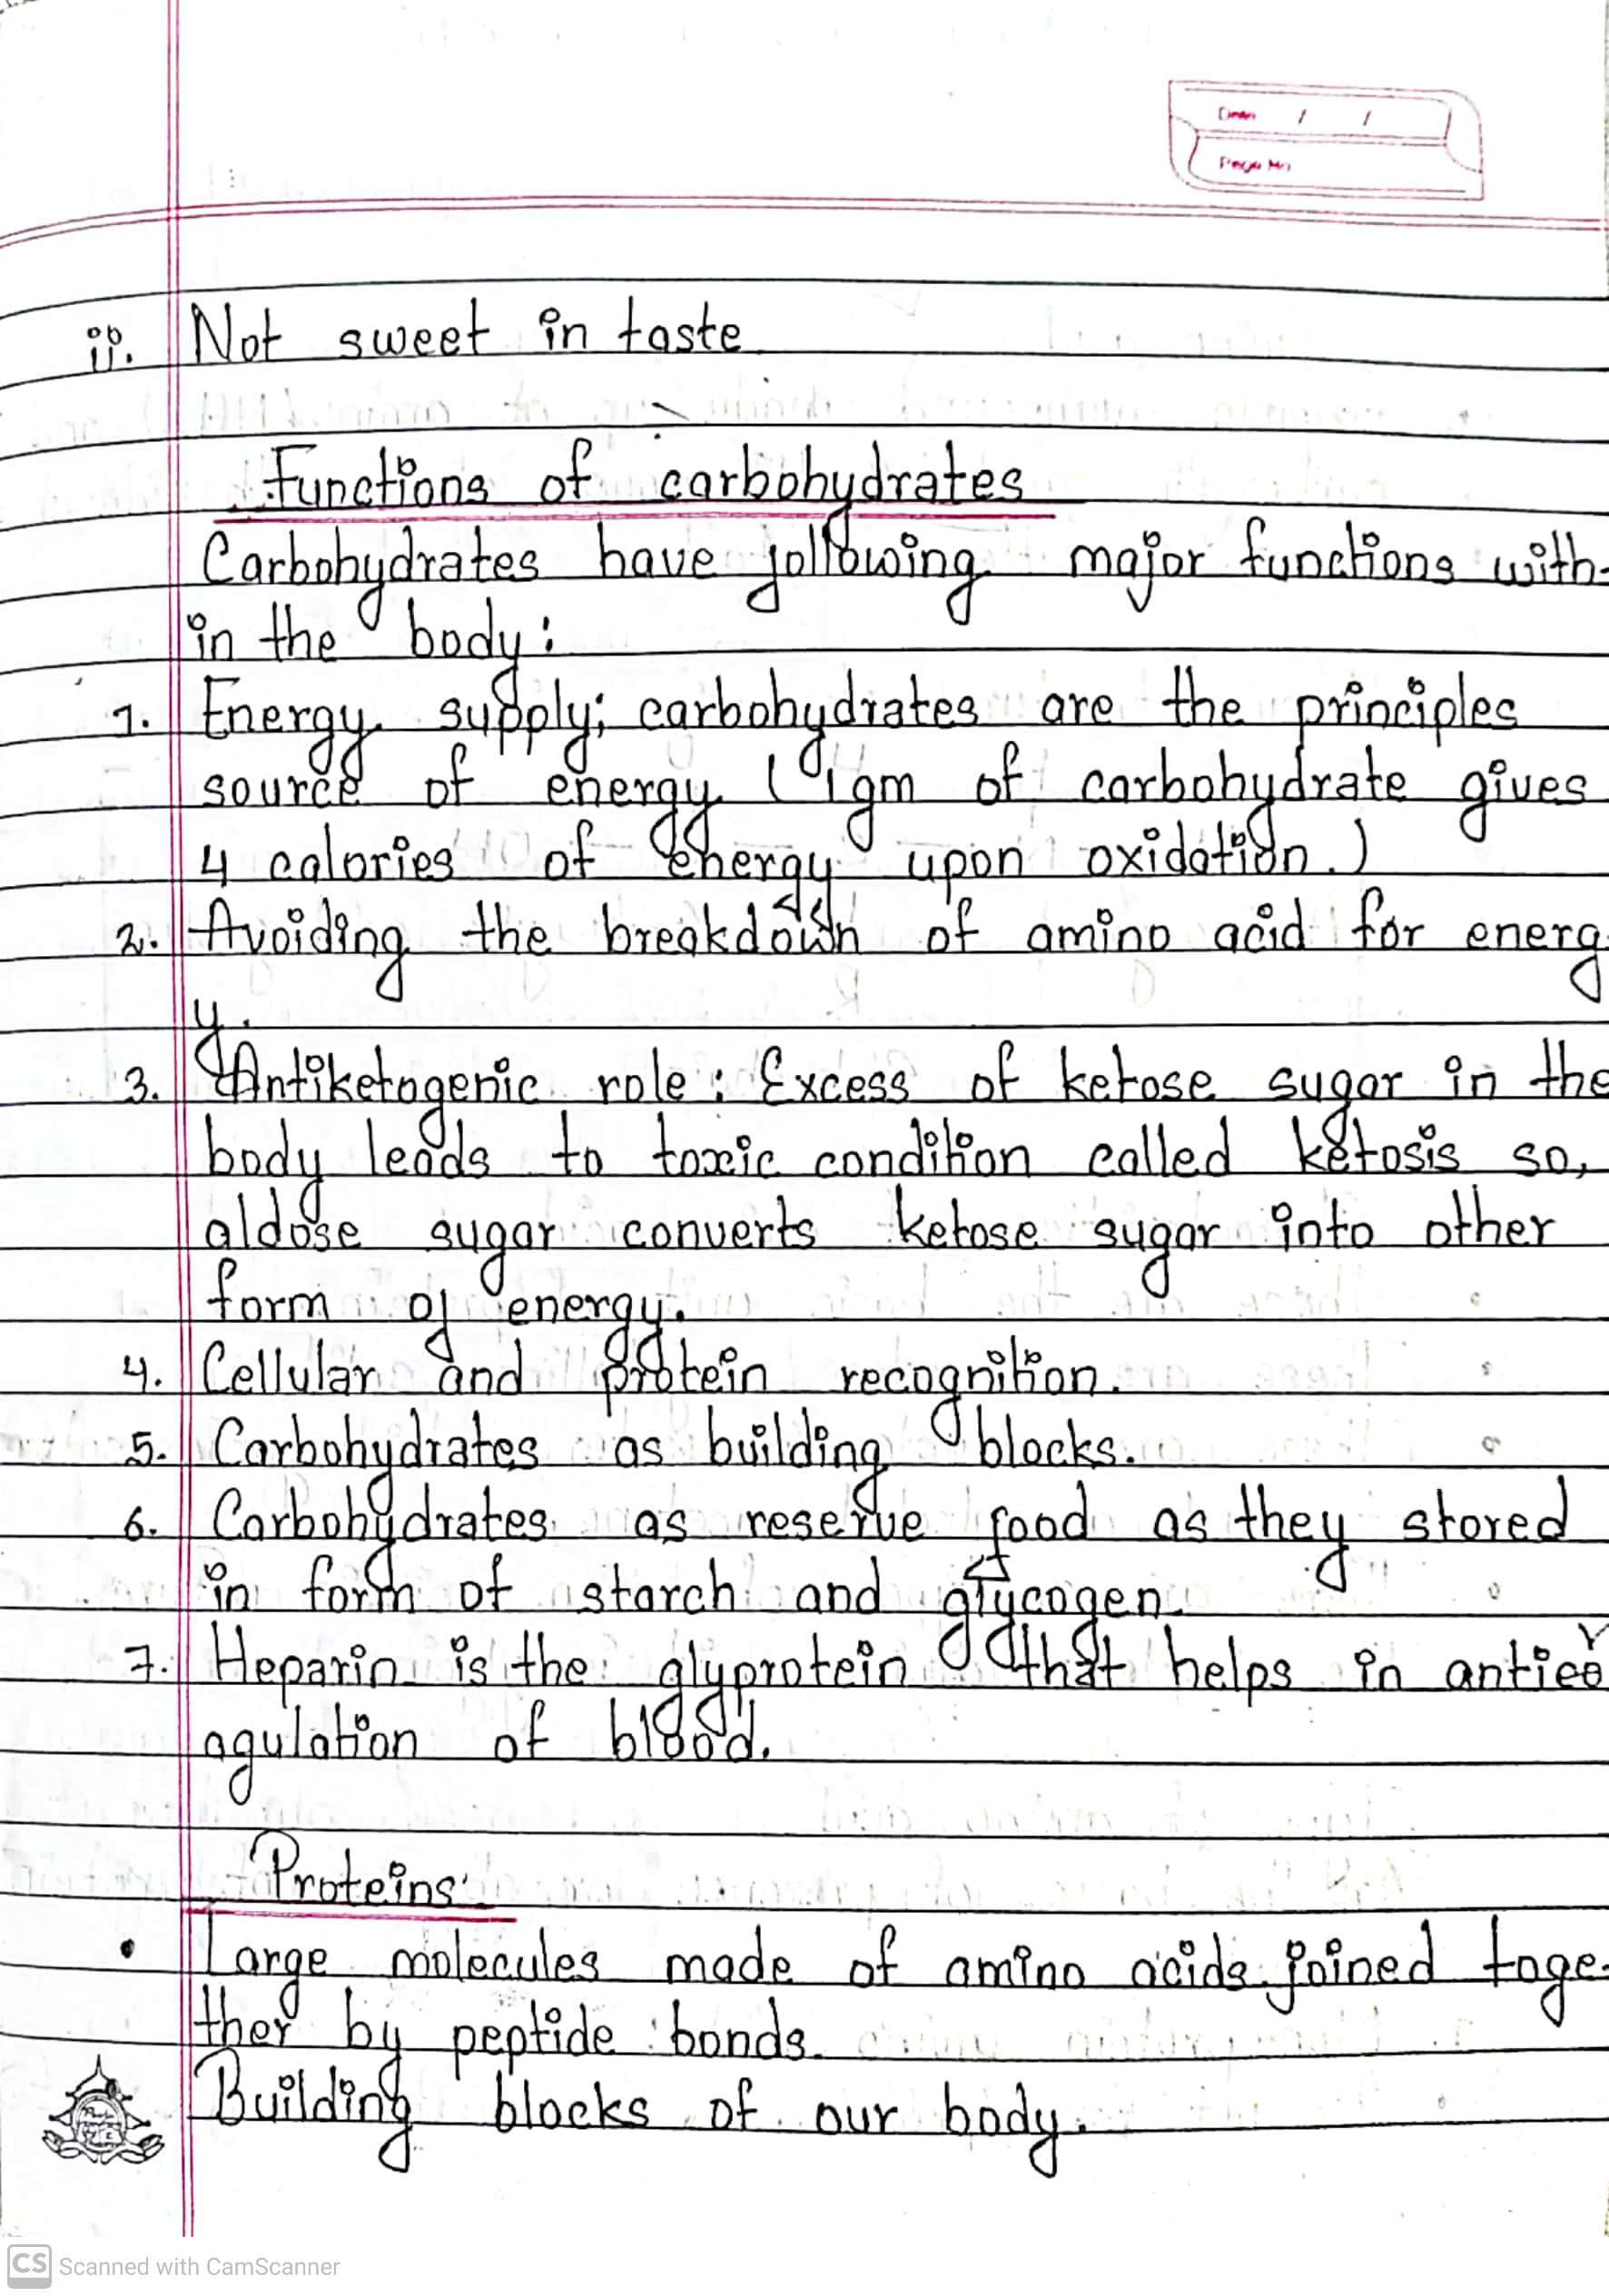 Date / /
Page No
ii. Not sweet in taste
Functions of carbohydrates
Carbohydrates have following major functions with-
in the body:
1. Energy supply; carbohydrates are the principles
source of energy (1gm of carbohydrate gives
4 calories of energy upon oxidation.)
2. Avoiding the breakdown of amino acid for energ
y.
3. Antiketogenic role: Excess of ketose sugar in the
body leads to toxic condition called ketosis so,
aldose sugar converts ketose sugar into other
form of energy.
4. Cellular and protein recognition.
5. Carbohydrates as building blocks.
6. Carbohydrates as reserve food as they stored
in form of starch and glycogen.
7. Heparin is the glyprotein that helps in antico
agulation of blood.
Proteins
• Large molecules made of amino acids joined toge-
ther by peptide bonds.
Building blocks of our body.
CS Scanned with CamScanner